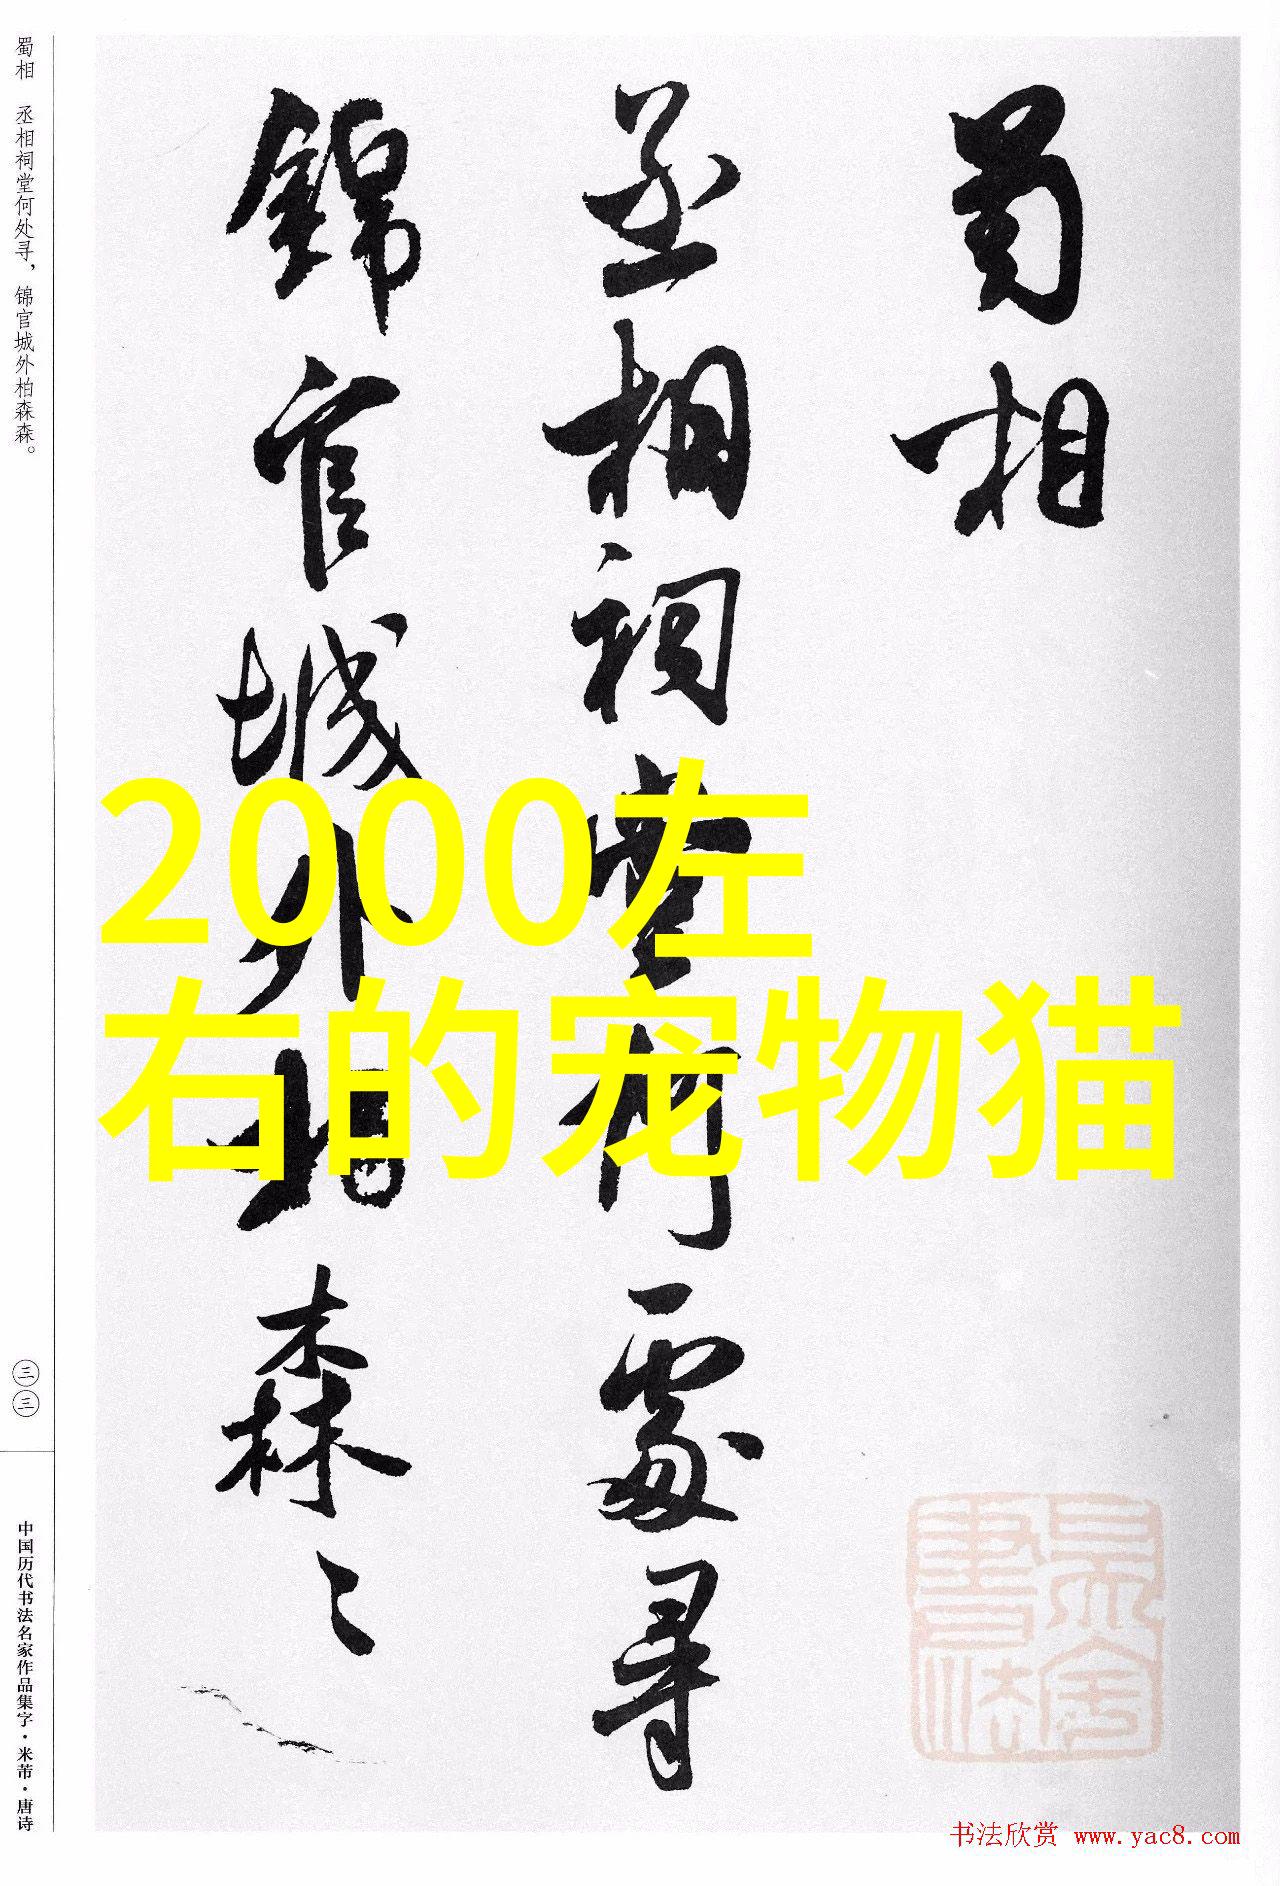 蜀相
丞相祠堂何處尋
錦官城外柏森々
2000左
右的宠物猫
蜀相 丞相祠堂何处寻，锦官城外柏森森。
三三
中国历代书法名家作品集字·米芾·唐诗
书法欣赏 www.yac8.com